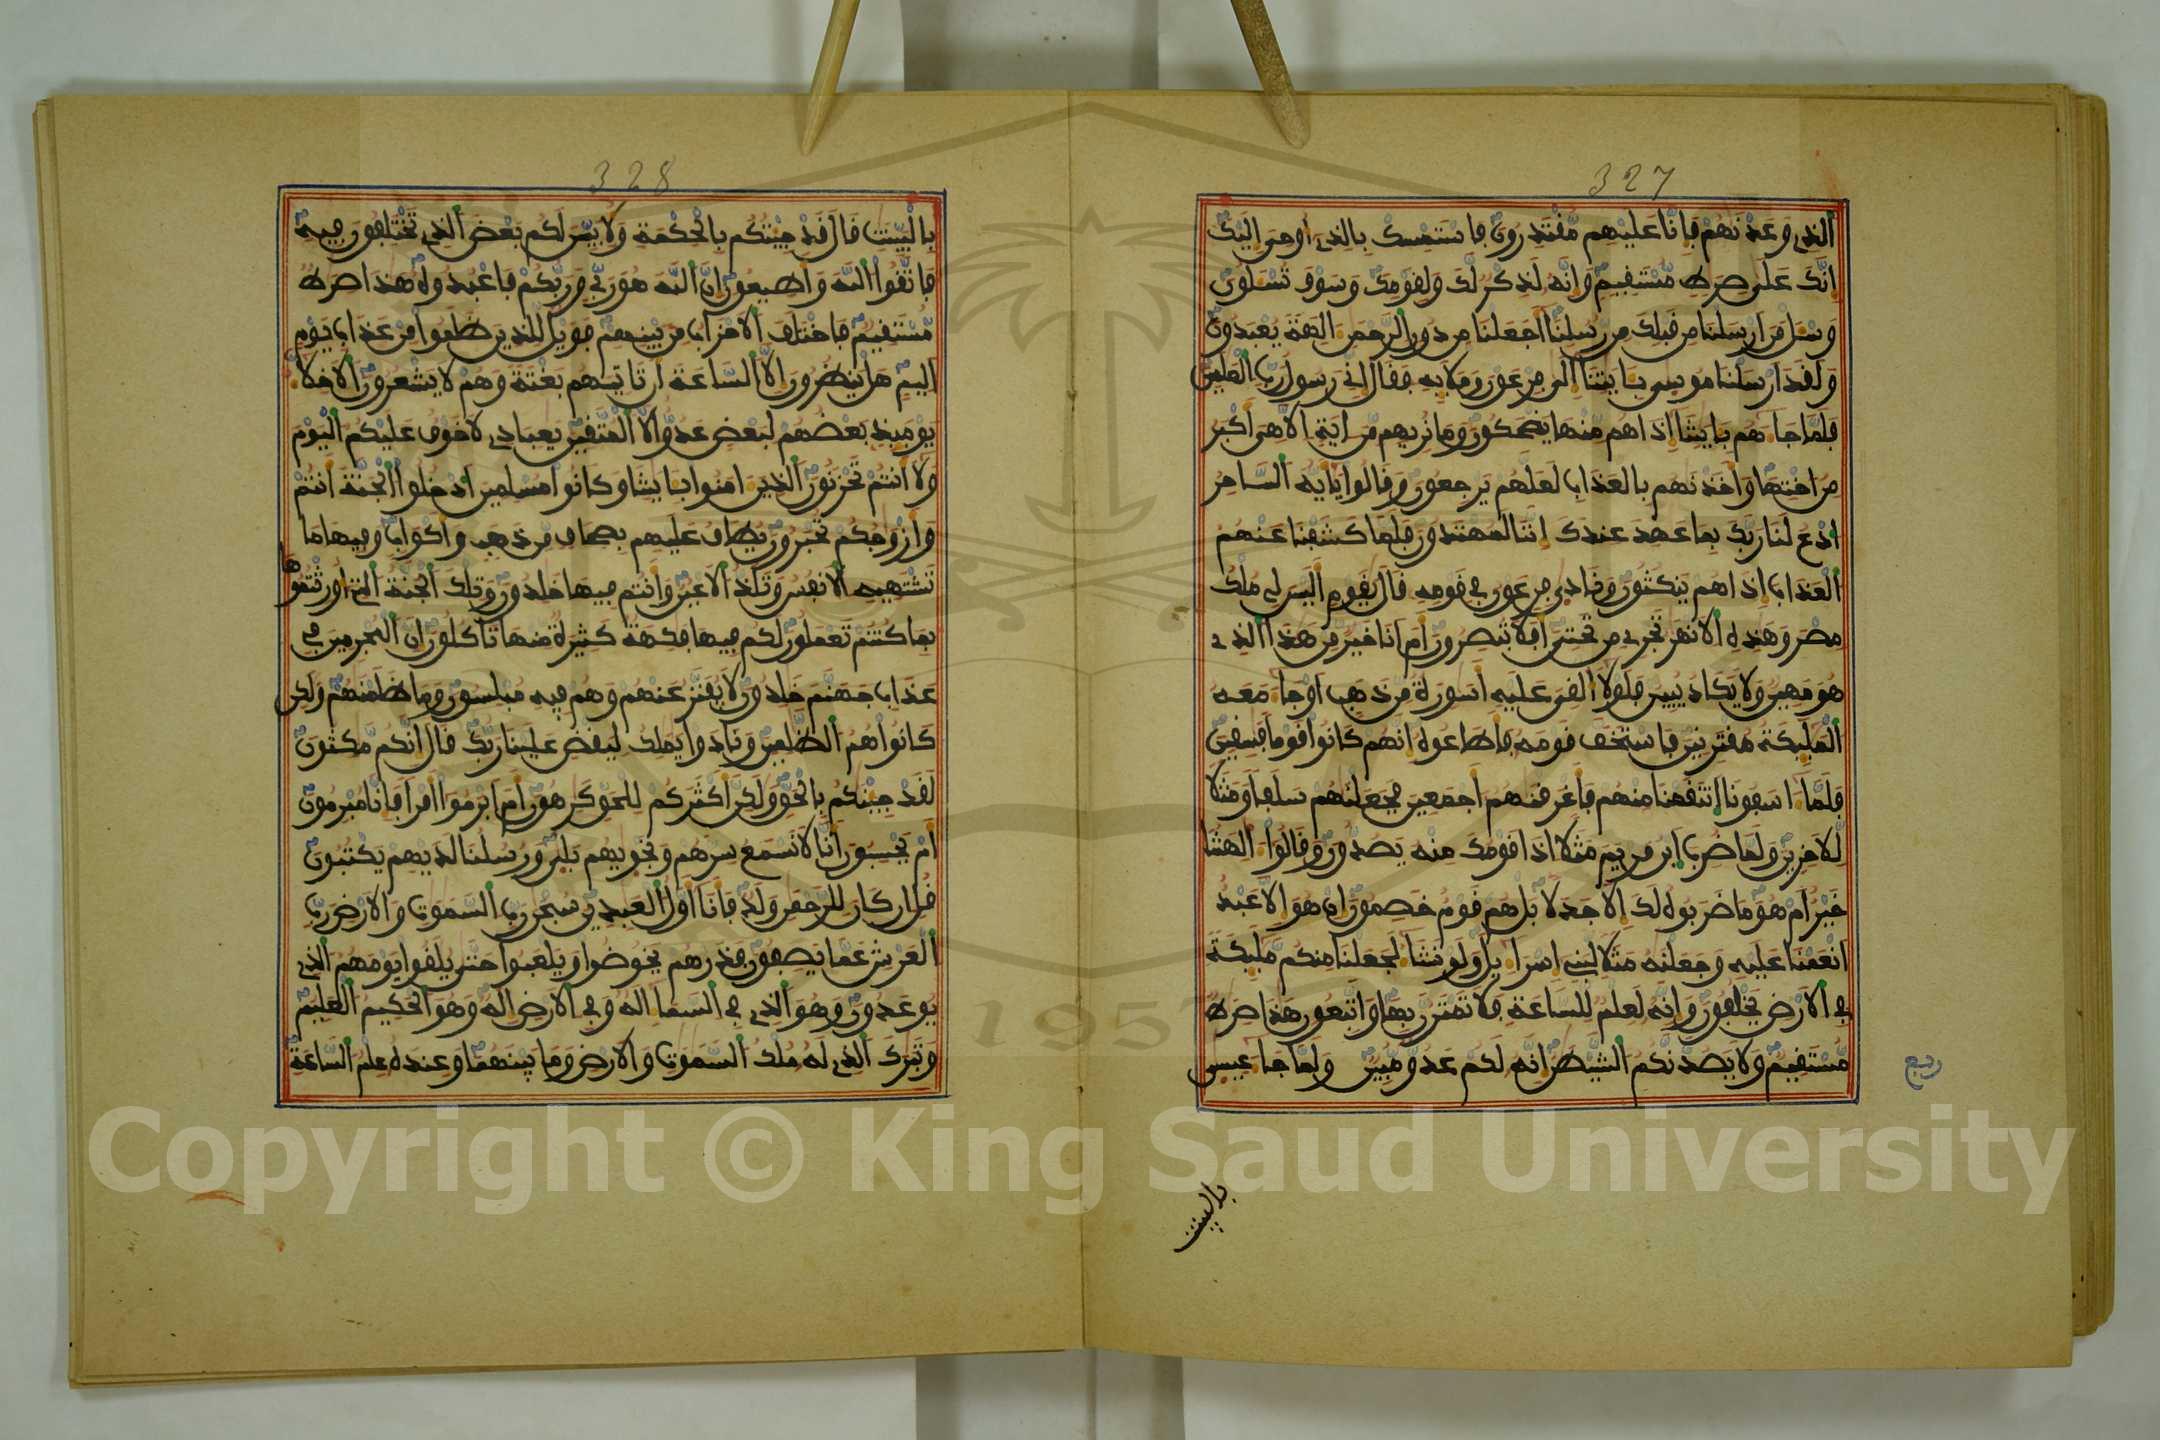 327
الذي وعدنهم فإنا عليهم مقتدرون فاستمسك بالذي أوحي إليك
إنك على صرط مستقيم وإنه لذكر لك ولقومك وسوف تسلون
وسل من ارسلنا من قبلك من رسلنا أجعلنا من دون الرحمن ءالهة يعبدون
ولقد ارسلنا موسى بايتنا إلى فرعون وملإيه فقال إني رسول رب العلمين
فلما جاءهم بايتنا إذا هم منها يضحكون وما نريهم من ءاية الا هي أكبر
من اختها وأخذنهم بالعذاب لعلهم يرجعون وقالوا يأيه الساحر
ادع لنا ربك بما عهد عندك إننا لمهتدون فلما كشفنا عنهم
العذاب إذا هم ينكثون ونادى فرعون في قومه قال يقوم أليس لي ملك
مصر وهذه الانهر تجري من تحتي أفلا تبصرون أم انا خير من هذا الذي
هو مهين ولا يكاد يبين فلولا ألقي عليه أسورة من ذهب او جاء معه
المليكة مقترنين فاستخف قومه فأطاعوه إنهم كانوا قوما فسقين
فلما ءاسفونا انتقمنا منهم فأغرقنهم أجمعين فجعلنهم سلفا ومثلا
للاخرين ولما ضرب ابن مريم مثلا اذا قومك منه يصدون وقالوا ءالهتنا
خير أم هو ما ضربوه لك إلا جدلا بل هم قوم خصمون إن هو إلا عبد
انعمنا عليه وجعلنه مثلا لبني إسراءيل ولو نشاء لجعلنا منكم مليكة
في الارض يخلفون وإنه لعلم للساعة فلا تمترن بها واتبعون هذا صرط
مستقيم ولا يصدنكم الشيطن إنه لكم عدو مبين ولما جاء عيسى
ربع
بالبينت
328
بالبينت قال قد جيتكم بالحكمة ولأبين لكم بعض الذي تختلفون فيه
فاتقوا الله وأطيعون إن الله هو ربي وربكم فاعبدوه هذا صرط
مستقيم فاختلف الاحزاب من بينهم فويل للذين ظلموا من عذاب يوم
اليم هل ينظرون إلا الساعة أن تاتيهم بغتة وهم لا يشعرون الاخلاء
يوميذ بعضهم لبعض عدو الا المتقين يعبادي لا خوف عليكم اليوم
ولا أنتم تحزنون الذين ءامنوا بايتنا وكانوا مسلمين ادخلوا الجنة أنتم
وأزوجكم تحبرون يطاف عليهم بصحاف من ذهب وأكواب وفيها ما
تشتهيه الانفس وتلذ الاعين وأنتم فيها خلدون وتلك الجنة التي أورثتموها
بما كنتم تعملون لكم فيها فكهة كثيرة منها تاكلون إن المجرمين في
عذاب جهنم خلدون لا يفتر عنهم وهم فيه مبلسون وما ظلمنهم ولكن
كانوا هم الظلمين ونادوا يملك ليقض علينا ربك قال إنكم مكثون
لقد جينكم بالحق ولكن أكثركم للحق كرهون أم ابرموا أمرا فإنا مبرمون
أم يحسبون أنا لا نسمع سرهم ونجويهم بلى ورسلنا لديهم يكتبون
قل ان كان للرحمن ولد فأنا أول العبدين سبحن رب السموت والارض رب
العرش عما يصفون فذرهم يخوضوا ويلعبوا حتى يلقوا يومهم الذي
يوعدون وهو الذي في السماء اله وفي الارض إله وهو الحكيم العليم
وتبرك الذي له ملك السموت والارض وما بينهما وعنده علم الساعة
1957
Copyright © King Saud University